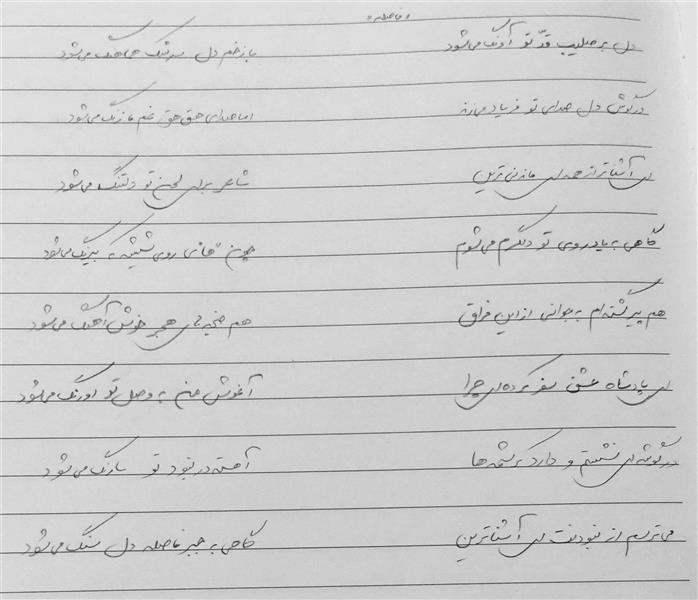 «فاصله»
دل بر صلیب قدّ تو آونگ می‌شود
با زخم دل سرشک هماهنگ می‌شود
در گوش دل صدای تو فریاد می‌زند
اما صدای هق هق غم زنگ می‌شود
ای آشناتر از همه ای نازنین‌ترین
شاعر برای لحن تو دلتنگ می‌شود
گاهی به یاد روی تو دلگرم می‌شوم
چون "ها"ی روی شیشه که بیرنگ می‌شود
هم پیر گشته‌ام به جوانی از این فراق
هم ضجه‌های هجر خوش‌آهنگ می‌شود
ای پادشاه عشق سفر کرده‌ای چرا
آغوش من به وصل تو اورنگ می‌شود
در گوشه‌ای نشستم و دارد کرشمه‌ها
آهسته در نبود تو سازنگ می‌شود
می‌ترسم از نبودنت ای آشناترین
گاهی به جبر فاصله دل سنگ می‌شود